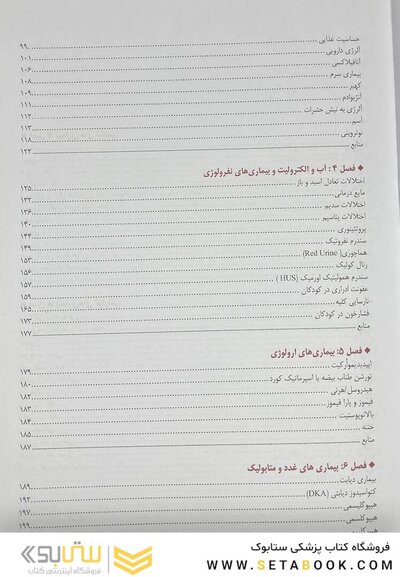 حساسیت غذایی ۹۹
آلرژی دارویی ۱۰۱
آنافیلاکسی ۱۰۶
بیماری سرم ۱۰۸
کهیر ۱۰۹
آنژیوادم ۱۱۱
آلرژی به نیش حشرات ۱۱۲
آسم ۱۱۳
نوتروپنی ۱۱۸
منابع ۱۲۲
◆ فصل ۴: آب و الکترولیت و بیماری‌های نفرولوژی
اختلالات تعادل اسید و باز ۱۲۵
مایع درمانی ۱۳۲
اختلالات سدیم ۱۳۶
اختلالات پتاسیم ۱۴۰
پروتئینوری ۱۴۴
سندرم نفروتیک ۱۴۹
هماچوری (Red Urine) ۱۵۳
رنال کولیک ۱۵۶
سندرم همولیتیک اورمیک (HUS) ۱۵۷
عفونت ادراری در کودکان ۱۵۹
نارسایی کلیه ۱۶۵
فشارخون در کودکان ۱۷۳
منابع ۱۷۷
◆ فصل ۵: بیماری‌های ارولوژی
اپیدیدیموارکیت ۱۷۹
تورشن طناب بیضه یا اسپرماتیک کورد ۱۸۰
هیدروسل/هرنی ۱۸۲
فیموز و پارا فیموز ۱۸۳
بالانوپوستیت ۱۸۴
ختنه ۱۸۵
منابع ۱۸۷
◆ فصل ۶: بیماری های غدد و متابولیک
بیماری دیابت ۱۸۹
کتواسیدوز دیابتی (DKA) ۱۹۲
هیپوگلیسمی ۱۹۷
هیپوکلسمی ۱۹۹
فروشگاه کتاب پزشکی ستابوک
WWW.SETABOOK.COM
ستابوک
فروشگاه اینترنتی کتاب